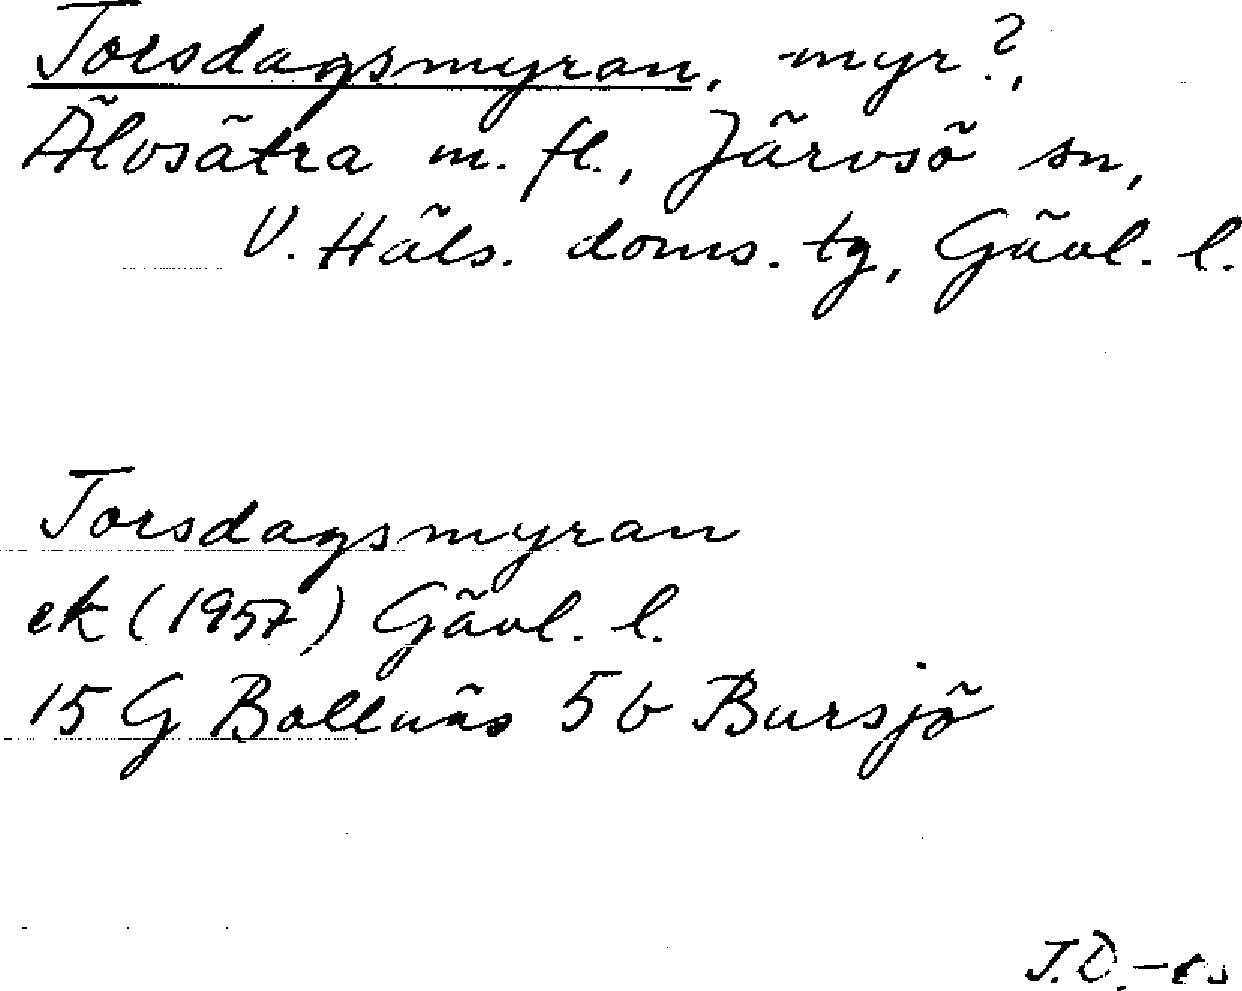 Torsdagsmyran, myr?,
Älvsätra m. fl., Järvsö sn,
V. Häls. doms. tg, Gävl. l.
Torsdagsmyran
ek (1957) Gävl. l.
15 G Bollnäs 5 b Bursjö